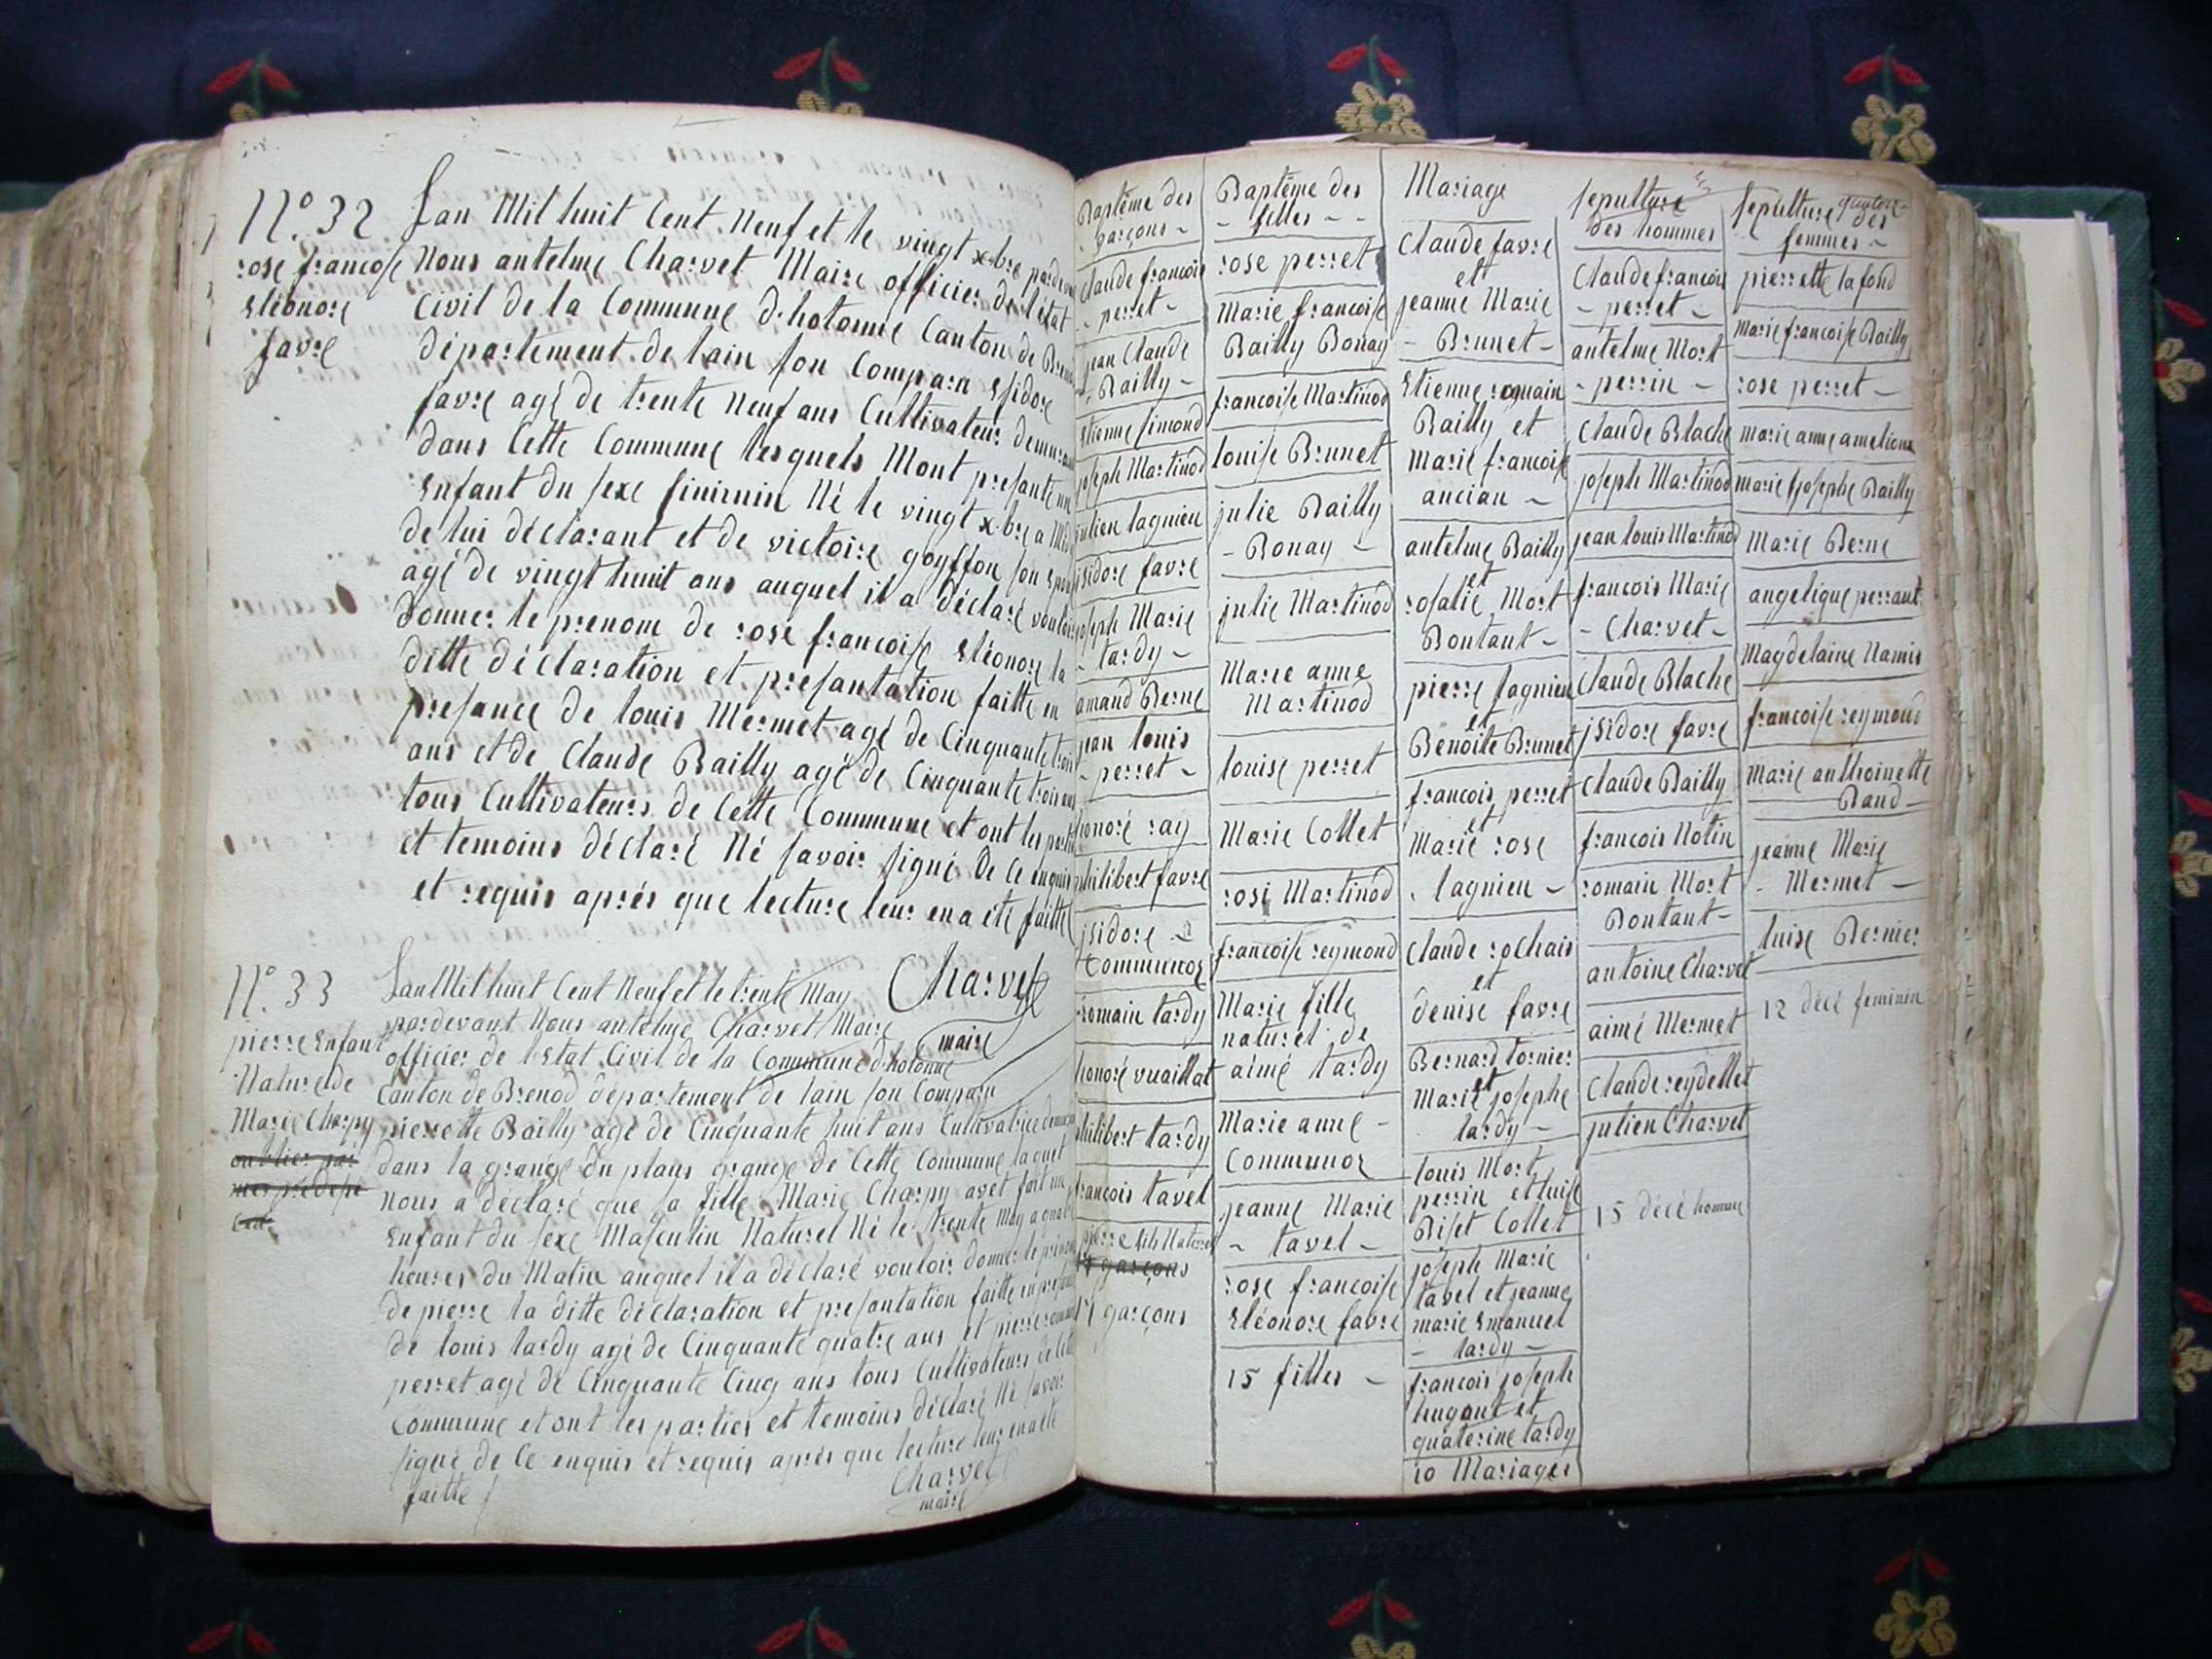 N.° 32
rose francoise
Eléonore
favre
Lan Mil huit Cent Neuf et le vingt xbre pardevant
Nous antelme Charvet Maire officier de l'état
Civil de la Commune d'hotonne Canton de
département de lain son Comparu Esidore
favre agé de trente Neuf ans Cultivateur
dans Cette Commune lesquels Mont presante un
Enfant du sexe finimin Né le vingt xbre a
de lui déclarant et de victoire goyffon son
agé de vingt huit ans auquel il a déclaré vouloir
donner le prenom de rose francoise Eléonore la
ditte déclaration et presantation faitte en
presance de louis Mermet agé de Cinquante trois
ans et de Claude Bailly agé de Cinquante trois ans
tous Cultivateurs de Cette Commune et ont les
et temoins déclaré Né savoir signé de Ce enquis
et requis aprés que lecture leur en a été faitte
Charvet
maire
N.° 33
pierre Enfant
Nature de
Marie Charpy
oublier par
Lan Mil huit Cent Neuf et le trente May
pardevant Nous antelme Charvet Maire
officier de l'Estat Civil de la Commune d'hotonne
Canton de Brenod département de lain son Comparu
pierrette Bailly agé de Cinquante huit ans Cultivatrice
dans la grange du plans grange de Cette Commune laquel
Nous a déclaré que sa fille Marie Charpy avet fait un
Enfant du sexe Masculin Naturel Né le trente May a quatre
heures du Matin auquel il a déclaré vouloir donner le prénom
de pierre la ditte déclaration et presantation faitte
de louis tardy agé de Cinquante quatre ans et pierre
perret agé de Cinquante Cinq ans tous Cultivateurs
Commune et ont les parties et temoins déclaré Né savoir
signé de Ce enquis et requis aprés que lecture leur en a été
faitte
Charvet
maire
Baptême des
- garçons -
Claude francois
- perret -
jean Claude
- Bailly -
Etienne simond
joseph Martinod
julien lagnieu
isidore favre
joseph Marie
- tardy -
amand Berne
jean louis
- perret -
honoré ray
philibert favre
jsidore
Communor
romain tardy
honoré vuaillat
philibert tardy
francois tavel
pierre fils Naturel
17 garçons
17 garçons
Baptême des
- filles - -
rose perret
Marie francoise
Bailly Bonay
francoise Martinod
louise Brunet
julie Bailly
- Bonay -
julie Martinod
Marie anne
Martinod
louise perret
Marie Collet
rosi Martinod
francoise reymond
Marie fille
naturel de
aimé tardy
Marie anne -
Communor
jeanne Marie
- tavel -
rose francoise
Eléonore favre
15 filles -
Mariage
Claude favre
et
jeanne Marie
- Brunet -
Etienne romain
Bailly et
Marie francoise
ancian -
antelme Bailly
et
rosalie Mort
Bontant -
pierre lagnieu
et
Benoite Brunet
francois perret
et
Marie rose
- lagnieu -
Claude rochais
et
denise favre
Bernard tornier
et
Marie josephe
tardy -
louis Mort
perrin et luise
Biset Collet
joseph Marie
tavel et jeanne
marie Emanuel
- tardy -
francois joseph
hugont et
quaterine tardy
10 Mariages
sepulture
des hommes
Claude francois
- perret -
antelme Mort
- perrin -
Claude Blache
joseph Martinod
jean louis Martinod
francois Marie
- Charvet -
Claude Blache
jsidore favre
Claude Bailly
francois Notin
romain Mort
Bontant -
antoine Charvet
aimé Mermet
Claude reydellet
julien Charvet
15 décé homme
sepulture des
femmes -
pierrette lafond
Marie francoise Bailly
rose perret -
marie anne
marie josephe Bailly
Marie Berne
angelique perraut
Magdelaine Namis
francoise reymond
Marie anthoinette
Baud -
jeanne Marie
- Mermet -
luise Bernier
12 décé feminin